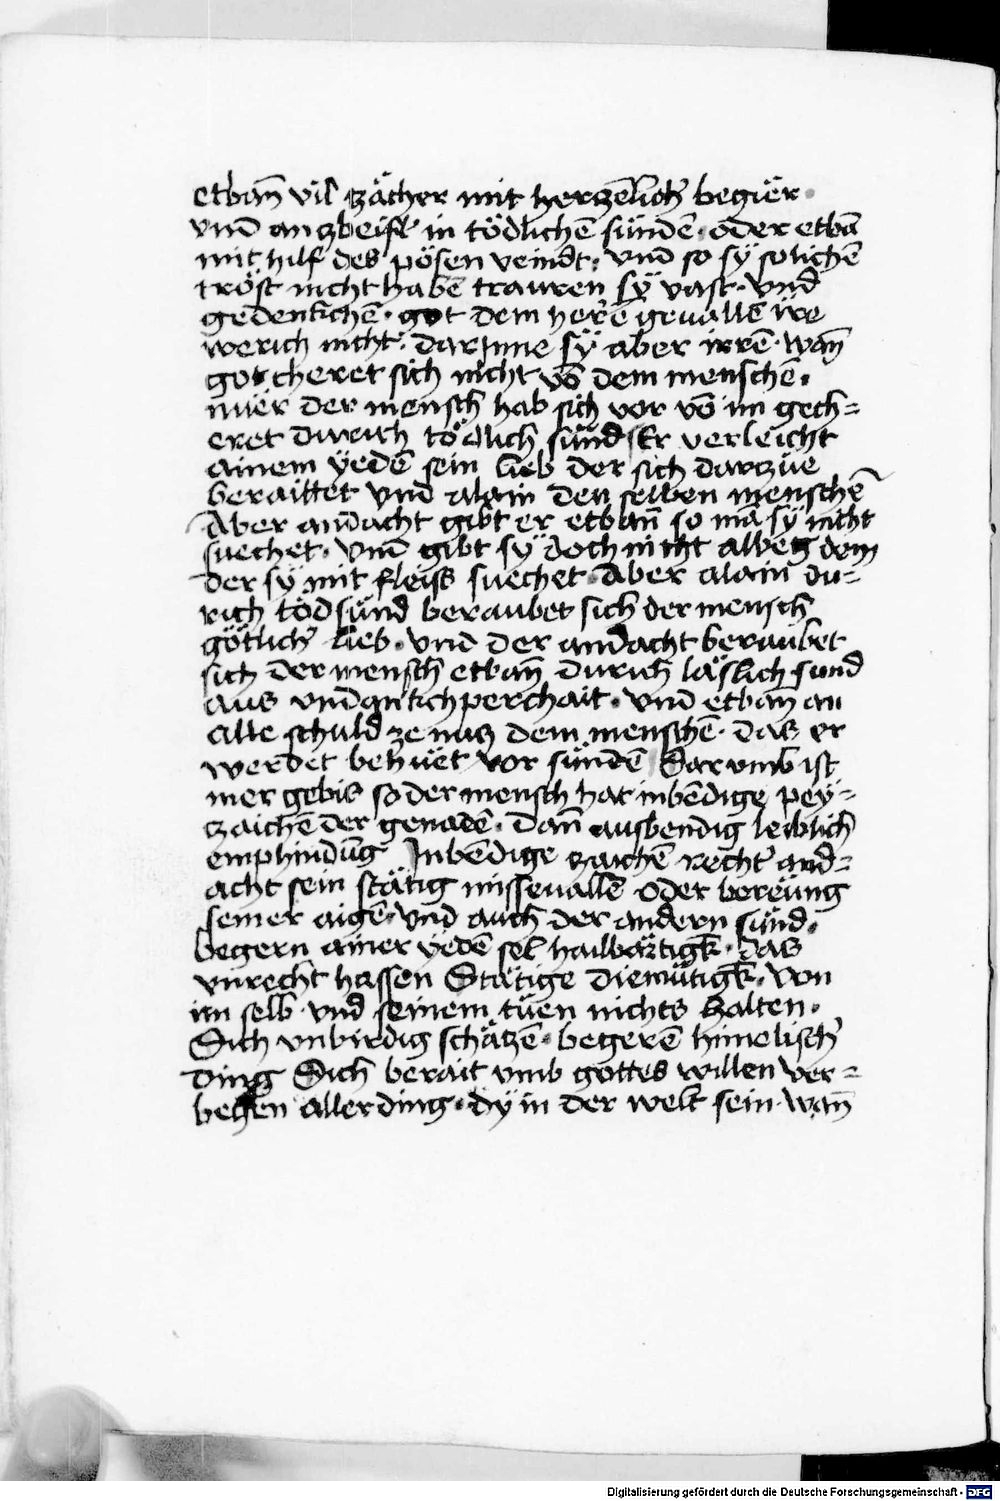 etban̄ vil zächer mit herzēlich̛ begier·
vnd̄ an zbeifl in tödlichē sündē· oder etbā
mit hilf des pösen veindt· vnd so sÿ solichē
tröst nicht habē trauren sÿ vast· vnd
gedenkchē· got dem herē geuallē ire
werich nicht· darjnne sÿ aber irrē· wan̄
got cheret sich nicht vō dem menschē·
nuer der mensch hab sich vor vō im gech=
eret durich tödlich sünd Er verleicht
ainem ÿedē sein lieb der sich darzüe
beraittet vnd alain den selben menschē
Aber andacht gibt er etban̄ so mā sÿ nicht
suechet· vnd̄ gibt sÿ doch nicht albeg dem
der sÿ mit fleiss suechet· Aber alain du=
rich tödsünd beraubet sich der mensch
götlich̛ lieb· vnd der andacht beraubet
sich der mensch etban̄ durich läslich sund
aus vndankchperchait· vnd etban̄ an
alle schuld ze nuz dem menschē· das er
werdet behüet vor sündē Darumb ist
mer gebis so der mensch hat inbēdige pey=
zaichē der genadē· dan̄ ausbendig leiblich
emphindūg Inbēdige zaichē recht̛ and=
acht sein stätig missevallē oder bereüng
seiner aigē· vnd auch der andern sünd·
begern ainer ÿedē sel hailbärtigk̄· das
vnrecht hassen Stätige diemütigk̄· von
im selb· vnd seinem tüen nichts halten·
Sich vnbirdig schäzē· begerē himelisch̛
ding Sich berait vmb gottes willen ver=
begen aller ding· dÿ in der welt sein· wan̄
Digitalisierung gefördert durch die Deutsche Forschungsgemeinschaft - DFG